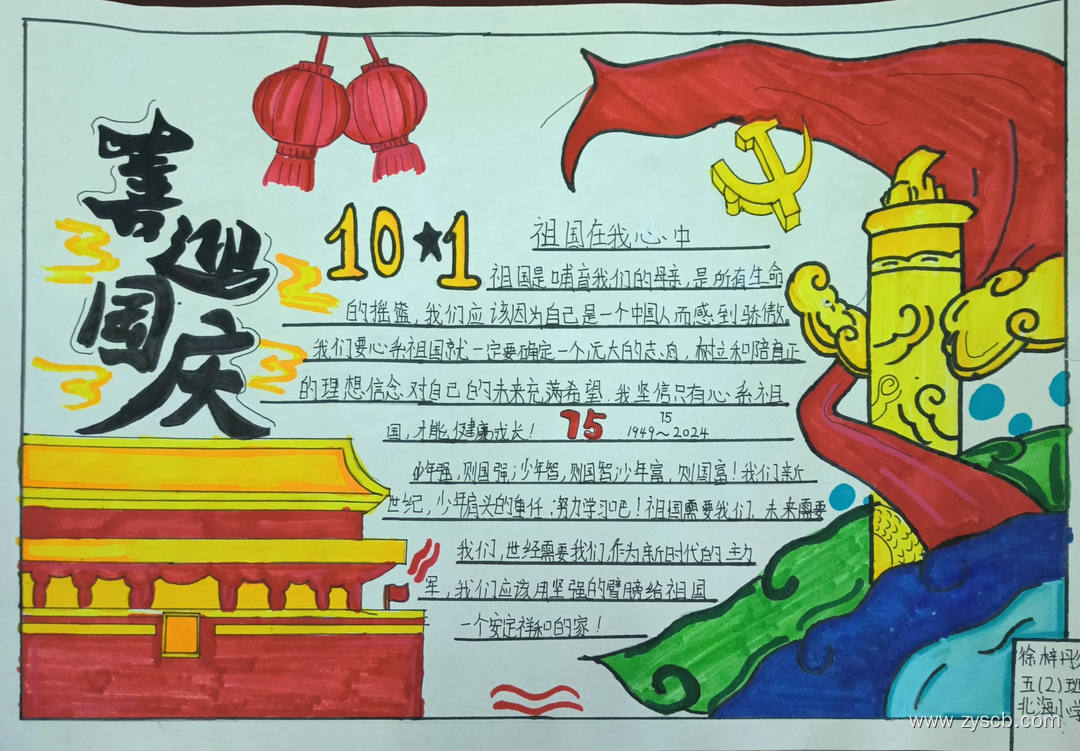 喜迎国庆
10★1
祖国在我心中
祖国是哺育我们的母亲,是所有生命
的摇篮,我们应该因为自己是一个中国人而感到骄傲
我们要心系祖国就一定要确定一个远大的志向,树立和陪育正
的理想信念对自己的未来充满希望.我坚信只有心系祖
国,才能健康成长!
75
75
1949～2024
少年强,则国强;少年智,则国智;少年富,则国富!我们新
世纪,少年肩头的重任,努力学习吧!祖国需要我们,未来需要
我们,世经需要我们,作为新时代的主力
军,我们应该用坚强的臂膀给祖国
一个安定祥和的家!
徐梓丹
五(2)班
北海小学
www.zyscb.com